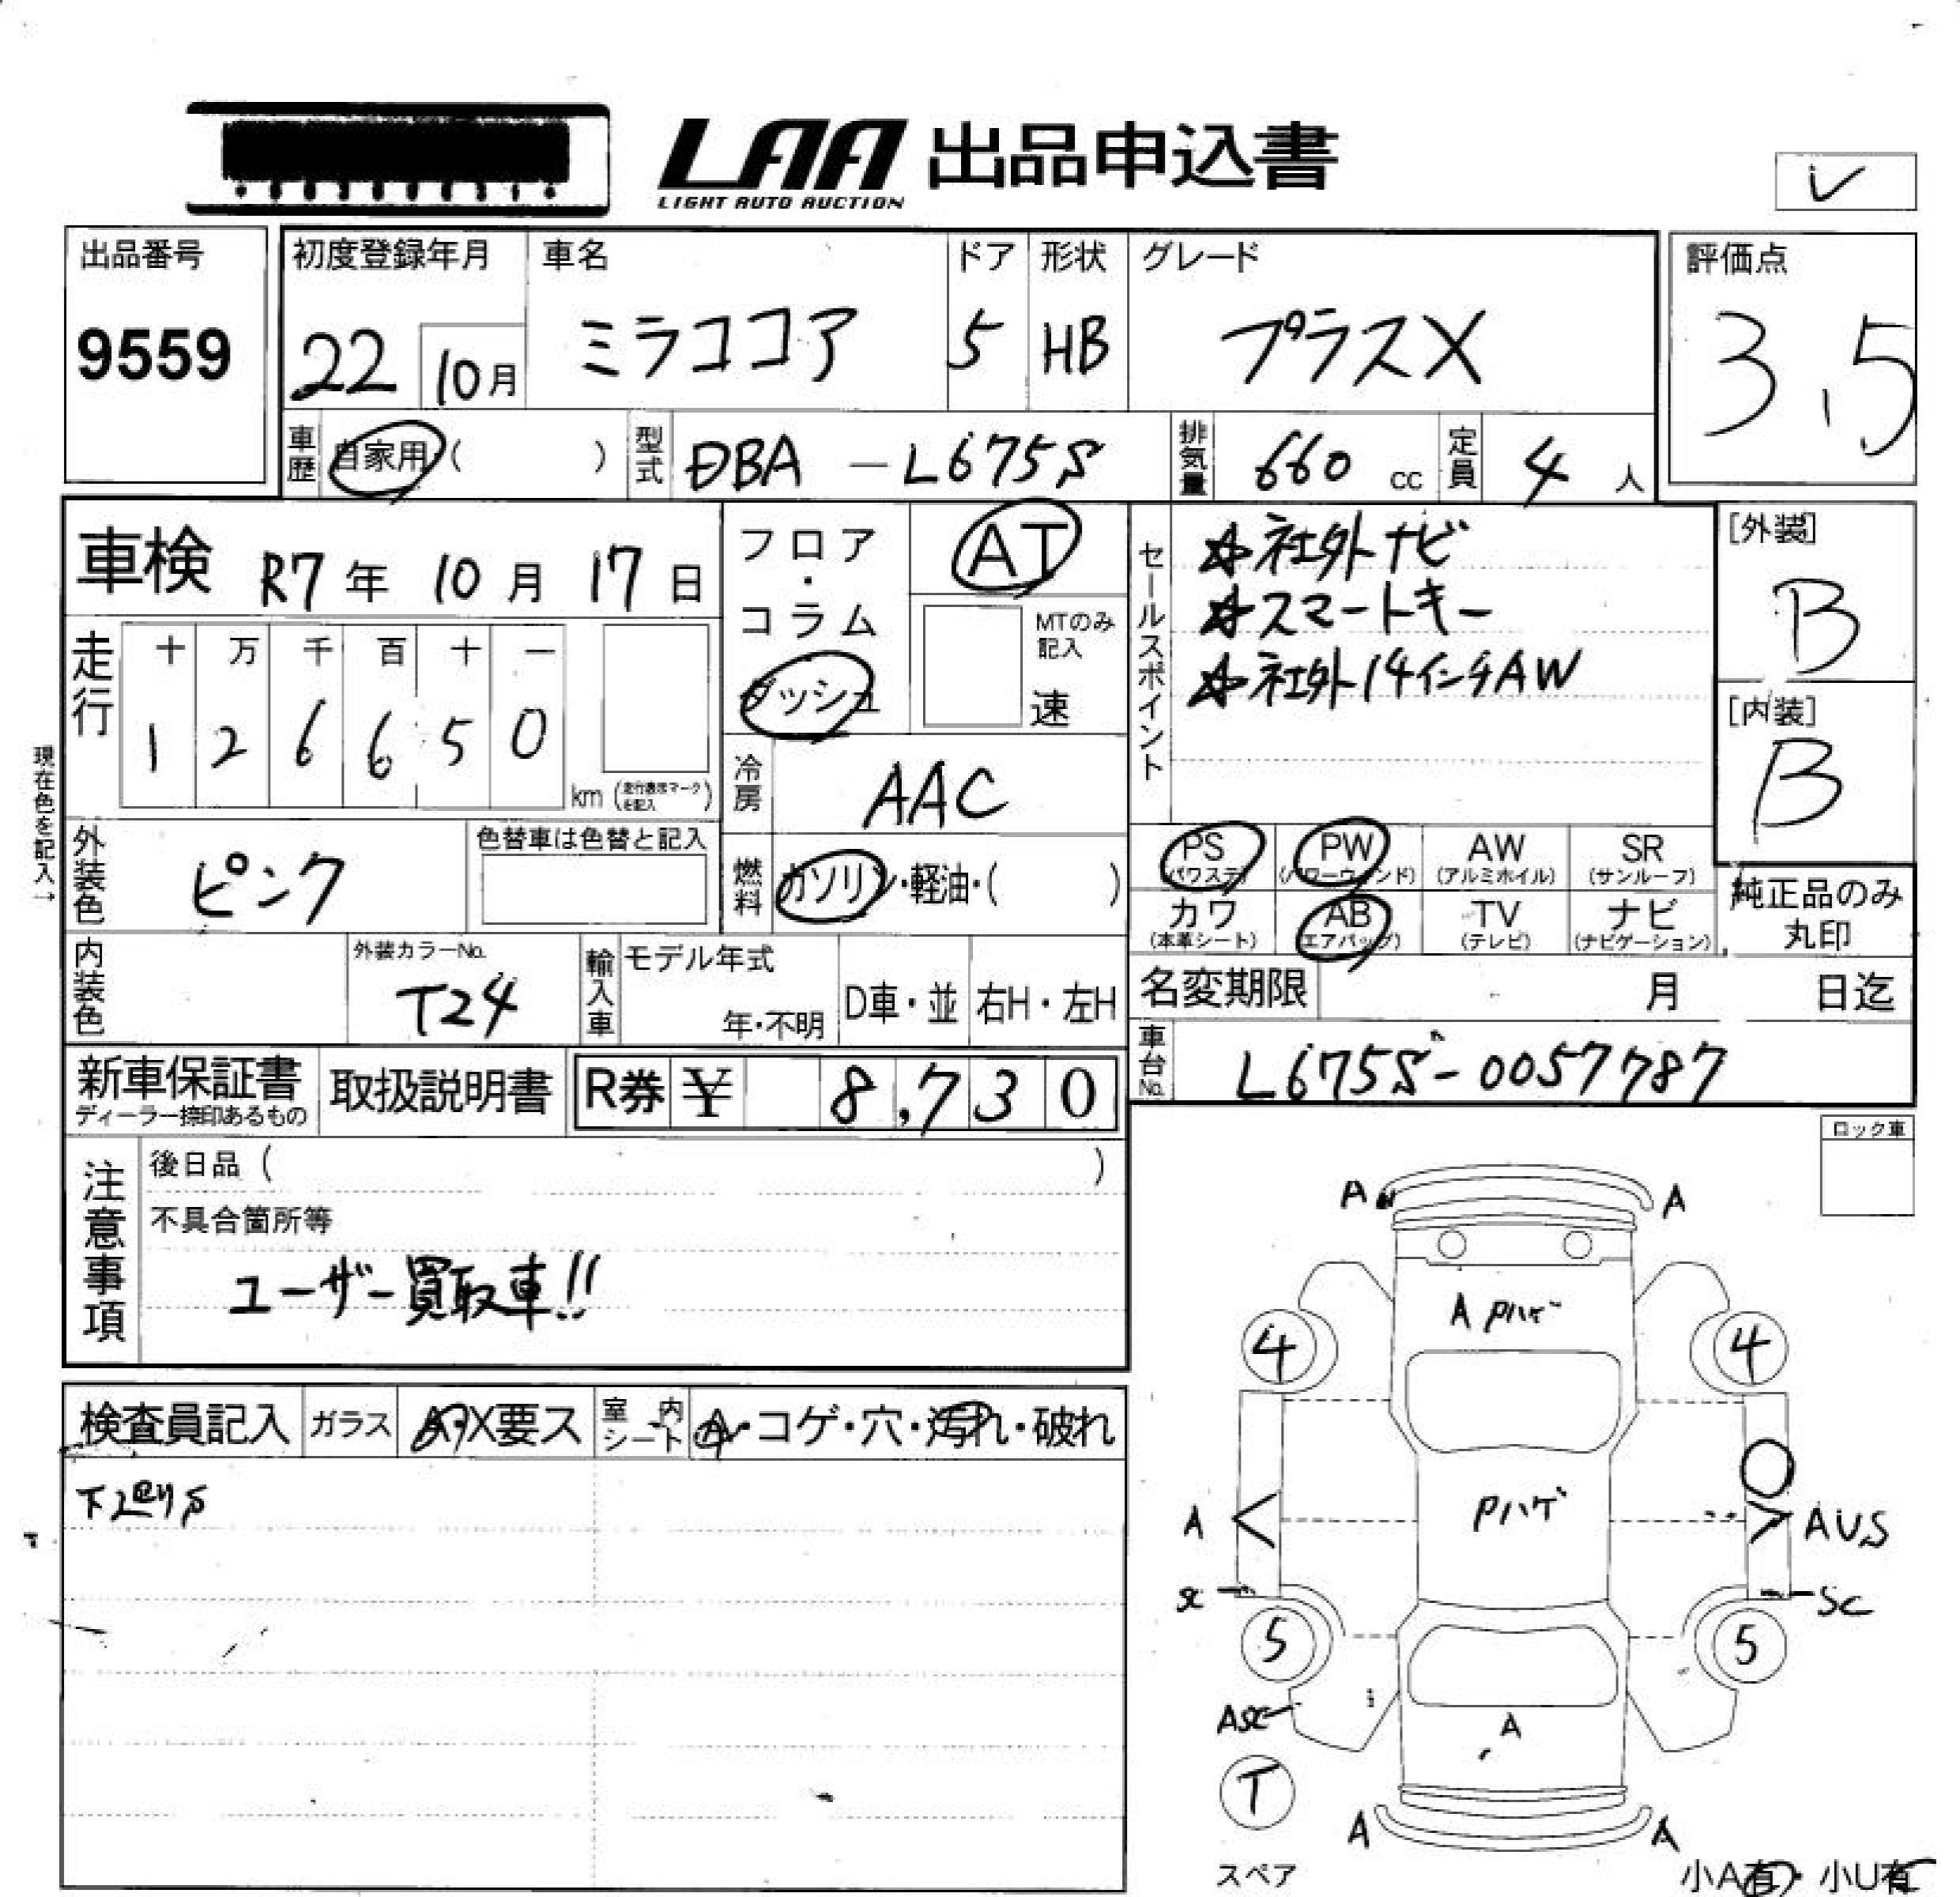 LAA 出品申込書
LIGHT AUTO AUCTION
レ
出品番号
9559
初度登録年月
22 10月
車名
ミラココア
ドア
5
形状
HB
グレード
プラスX
評価点
3.5
車歴 自家用 ( )
型式 DBA - L675S
排気量 660 cc
定員 4 人
車検 R7年 10月 17日
フロア・コラム
ダッシュ
AT
MTのみ記入
速
セールスポイント
☆社外ナビ
☆スマートキー
☆社外14インチAW
[外装]
B
[内装]
B
走行
十 万 千 百 十 一
1 2 6 6 5 0
km (走行表示マークを記入)
現在色を記入→
冷房 AAC
外装色 ピンク
色替車は色替と記入
燃料 ガソリン・軽油・( )
PS (パワステ)
PW (パワーウィンド)
AW (アルミホイル)
SR (サンルーフ)
カワ (本革シート)
AB (エアバッグ)
TV (テレビ)
ナビ (ナビゲーション)
純正品のみ
丸印
内装色
外装カラーNo.
T24
輸入車
モデル年式
年・不明
D車・並
右H・左H
名変期限 月 日迄
車台No. L675S-0057787
新車保証書
ディーラー捺印あるもの
取扱説明書
R券 ¥ 8,730
ロック車
注意事項
後日品 ( )
不具合箇所等
ユーザー買取車!!
検査員記入
ガラス
A・X要ス
室内シート
A・コゲ・穴・汚れ・破れ
A A
A Pハゲ
4 4
Pハゲ
A AUS
SC SC
5 5
ASC
A
T
A A
スペア
小A有・小U有